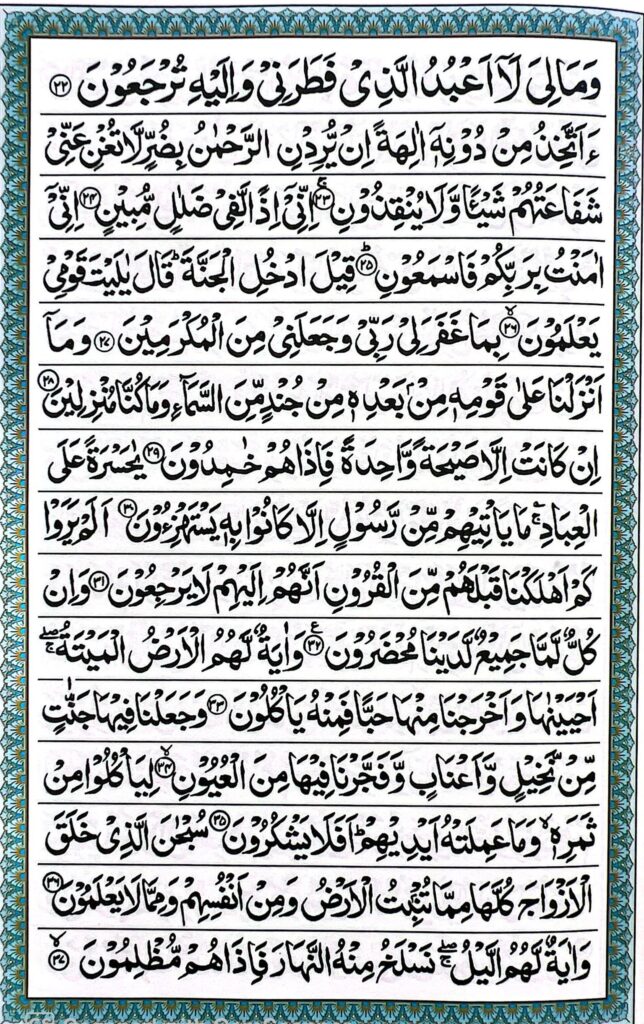 وَمَا لِیَ لَاۤ اَعْبُدُ الَّذِیْ فَطَرَنِیْ وَاِلَیْهِ تُرْجَعُوْنَ ﴿۲۲﴾
ءَاَتَّخِذُ مِنْ دُوْنِهٖۤ اٰلِهَةً اِنْ یُّرِدْنِ الرَّحْمٰنُ بِضُرٍّ لَّا تُغْنِ عَنِّیْ
شَفَاعَتُهُمْ شَیْـًٔا وَّلَا یُنْقِذُوْنِ ﴿۲۳﴾ اِنِّیْۤ اِذًا لَّفِیْ ضَلٰلٍ مُّبِیْنٍ ﴿۲۴﴾ اِنِّیْۤ
اٰمَنْتُ بِرَبِّكُمْ فَاسْمَعُوْنِ ﴿۲۵﴾ قِیْلَ ادْخُلِ الْجَنَّةَ ؕ قَالَ یٰلَیْتَ قَوْمِیْ
یَعْلَمُوْنَ ﴿۲۶﴾ بِمَا غَفَرَ لِیْ رَبِّیْ وَجَعَلَنِیْ مِنَ الْمُكْرَمِیْنَ ﴿۲۷﴾ وَمَاۤ
اَنْزَلْنَا عَلٰی قَوْمِهٖ مِنْۢ بَعْدِهٖ مِنْ جُنْدٍ مِّنَ السَّمَآءِ وَمَا كُنَّا مُنْزِلِیْنَ ﴿۲۸﴾
اِنْ كَانَتْ اِلَّا صَیْحَةً وَّاحِدَةً فَاِذَا هُمْ خٰمِدُوْنَ ﴿۲۹﴾ یٰحَسْرَةً عَلَی
الْعِبَادِ ۚ مَا یَاْتِیْهِمْ مِّنْ رَّسُوْلٍ اِلَّا كَانُوْا بِهٖ یَسْتَهْزِءُوْنَ ﴿۳۰﴾ اَلَمْ یَرَوْا
كَمْ اَهْلَكْنَا قَبْلَهُمْ مِّنَ الْقُرُوْنِ اَنَّهُمْ اِلَیْهِمْ لَا یَرْجِعُوْنَ ﴿۳۱﴾ وَاِنْ
كُلٌّ لَّمَّا جَمِیْعٌ لَّدَیْنَا مُحْضَرُوْنَ ﴿۳۲﴾ وَاٰیَةٌ لَّهُمُ الْاَرْضُ الْمَیْتَةُ ۖۚ
اَحْیَیْنٰهَا وَاَخْرَجْنَا مِنْهَا حَبًّا فَمِنْهُ یَاْكُلُوْنَ ﴿۳۳﴾ وَجَعَلْنَا فِیْهَا جَنّٰتٍ
مِّنْ نَّخِیْلٍ وَّاَعْنَابٍ وَّفَجَّرْنَا فِیْهَا مِنَ الْعُیُوْنِ ﴿۳۴﴾ لِیَاْكُلُوْا مِنْ
ثَمَرِهٖ ۙ وَمَا عَمِلَتْهُ اَیْدِیْهِمْ ؕ اَفَلَا یَشْكُرُوْنَ ﴿۳۵﴾ سُبْحٰنَ الَّذِیْ خَلَقَ
الْاَزْوَاجَ كُلَّهَا مِمَّا تُنْۢبِتُ الْاَرْضُ وَمِنْ اَنْفُسِهِمْ وَمِمَّا لَا یَعْلَمُوْنَ ﴿۳۶﴾
وَاٰیَةٌ لَّهُمُ الَّیْلُ ۖۚ نَسْلَخُ مِنْهُ النَّهَارَ فَاِذَا هُمْ مُّظْلِمُوْنَ ﴿۳۷﴾